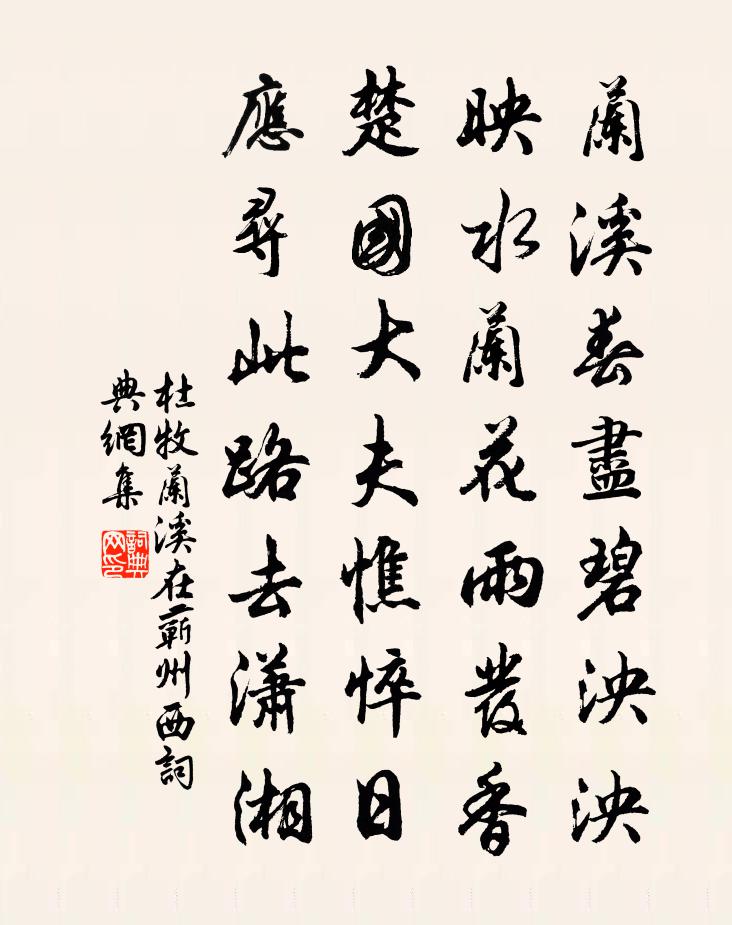 蘭溪春盡碧泱泱
映水蘭花雨發香
楚國大夫憔悴日
應尋此路去瀟湘
杜牧蘭溪在蘄州西詞
典網集
詞典网印